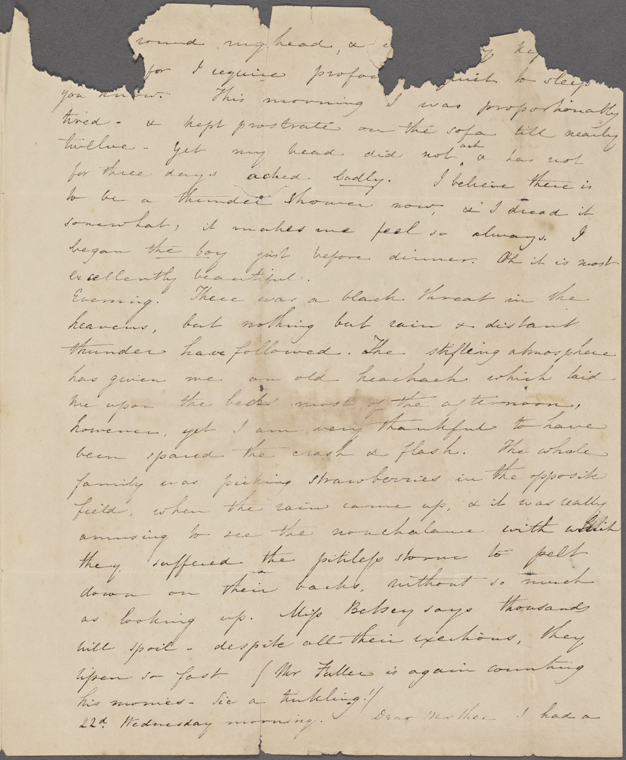 round my head, &
for I require profou quiet to sleep
you know. This morning I was proportionally
tired - & kept prostrate on the sofa till nearly
twelve - Yet my head did not ach & has not
for three days ached badly. I believe there is
to be a thunder shower now, & I dread it
somewhat, it makes me feel so always. I
began the boy just before dinner. Oh it is most
excellently beautiful.
Evening. There was a black threat in the
heavens, but nothing but rain & distant
thunder have followed. The stifling atmosphere
has given me an old headach which laid
me upon the bed most of the afternoon,
however, yet I am very thankful to have
been spared the crash & flash. The whole
family was picking strawberries in the opposite
field, when the rain came up, & it was really
amusing to see the nonchalance with which
they suffered the pitiless storm to pelt
down on their backs, without so much
as looking up. Miss Betsey says thousands
will spoil - despite all their exertions, they
ripen so fast (Mr Fuller is again counting
his monies - Sic a tinkling!)
22d. Wednesday morning. Dear Mother I had a